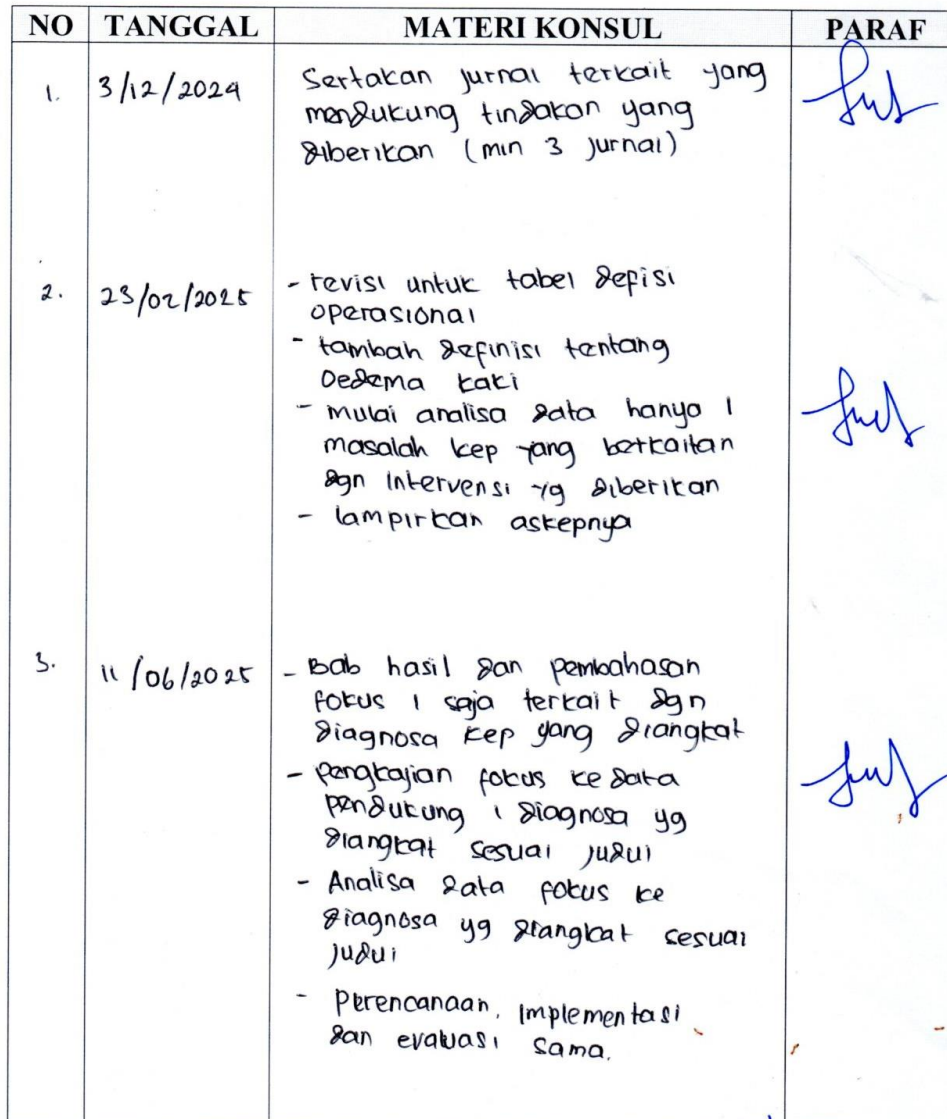 NO TANGGAL MATERI KONSUL PARAF
1. 3/12/2024 Sertakan jurnal terkait yang
mendukung tindakan yang
diberikan (min 3 jurnal)
2. 23/02/2025 - revisi untuk tabel defisi
operasional
- tambah definisi tentang
Oedema kaki
- mulai analisa data hanya 1
masalah kep yang berkaitan
dgn intervensi yg diberikan
- lampirkan askepnya
3. 11/06/2025 - Bab hasil dan pembahasan
fokus 1 saja terkait dgn
diagnosa kep yang diangkat
- pengkajian fokus ke data
pendukung 1 diagnosa yg
diangkat sesuai judul
- Analisa data fokus ke
diagnosa yg diangkat sesuai
judul
- Perencanaan, Implementasi
dan evaluasi sama.